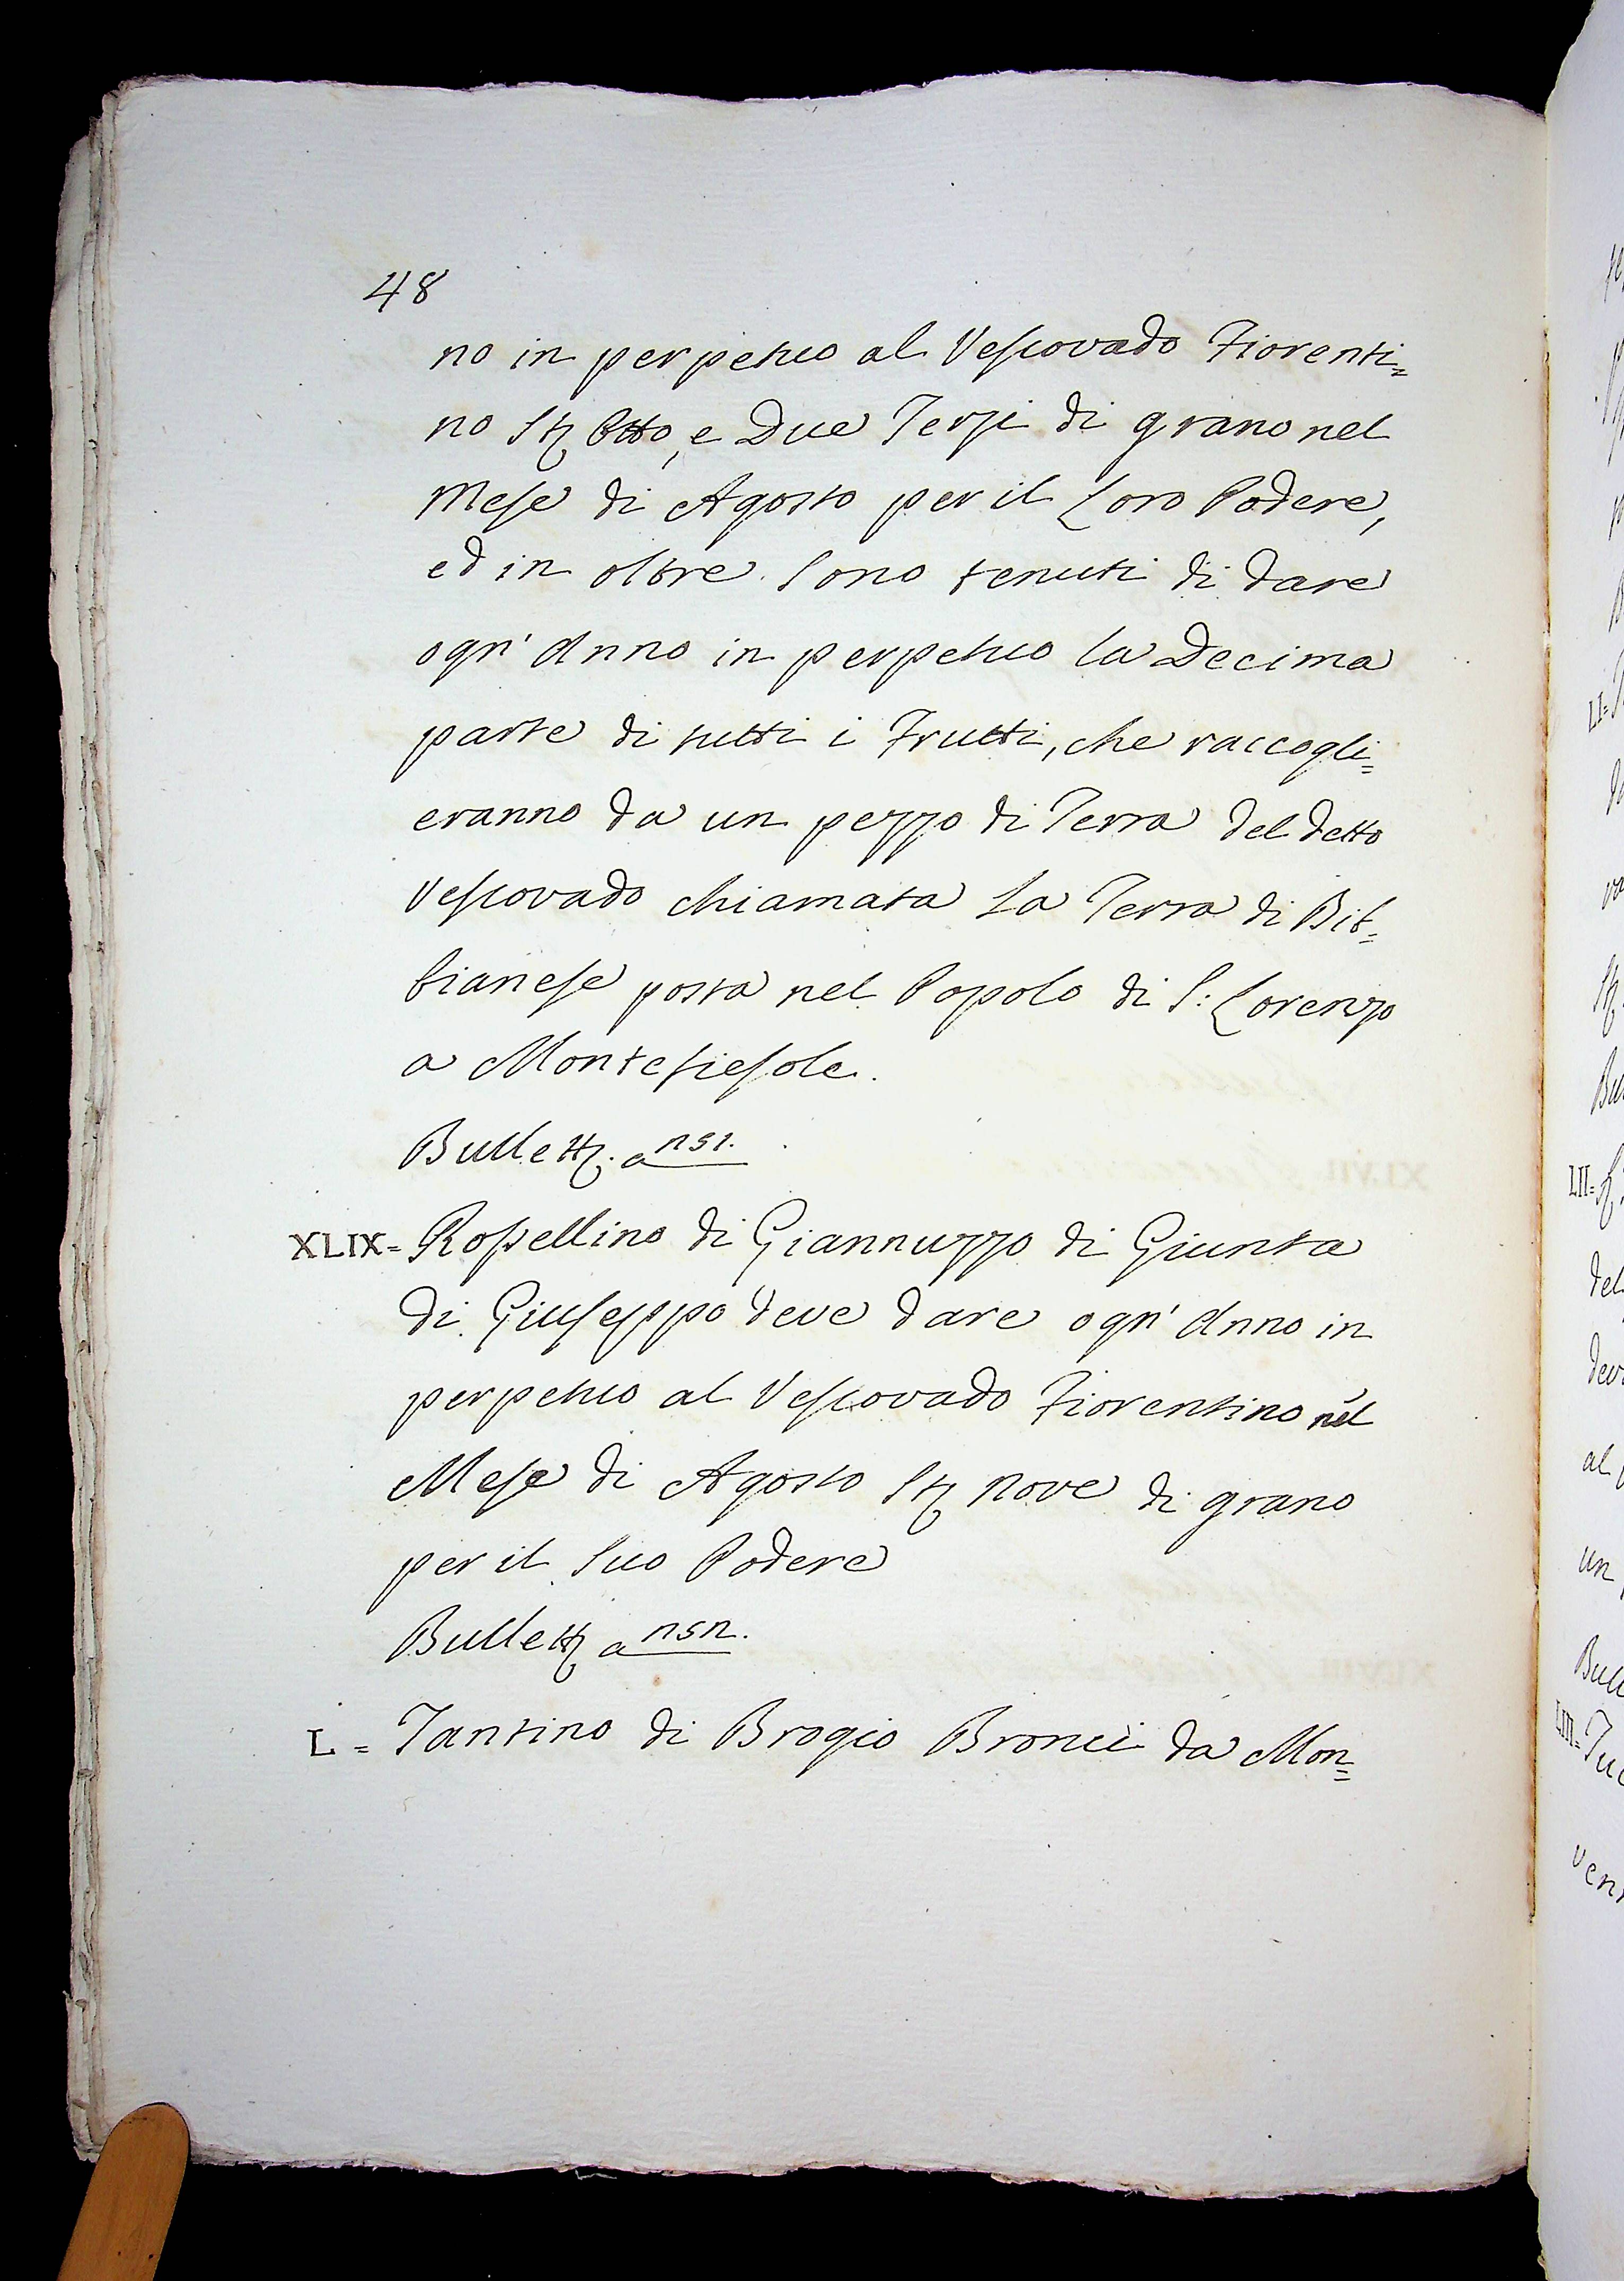 48
no in perpetuo al Vescovado Fiorenti=
no Stȝ Otto, e Due Terzi di grano nel
Mese di Agosto per il Loro Podere,
ed in oltre sono tenuti di dare
ogn' Anno in perpetuo la Decima
parte di tutti i Frutti, che raccogli=
eranno da un pezzo di Terra del detto
Vescovado chiamata La Terra di Bib=
bianese posta nel Popolo di S: Lorenzo
a Montefiesole.
Bullettȝ. a ns1.
XLIX= Rossellino di Giannuzzo di Giunta
di Giuseppo deve dare ogn' Anno in
perpetuo al Vescovado Fiorentino nel
Mese di Agosto Stȝ nove di grano
per il Suo Podere
Bullettȝ a nsn.
L= Tantino di Brogio Bronci da Mon=